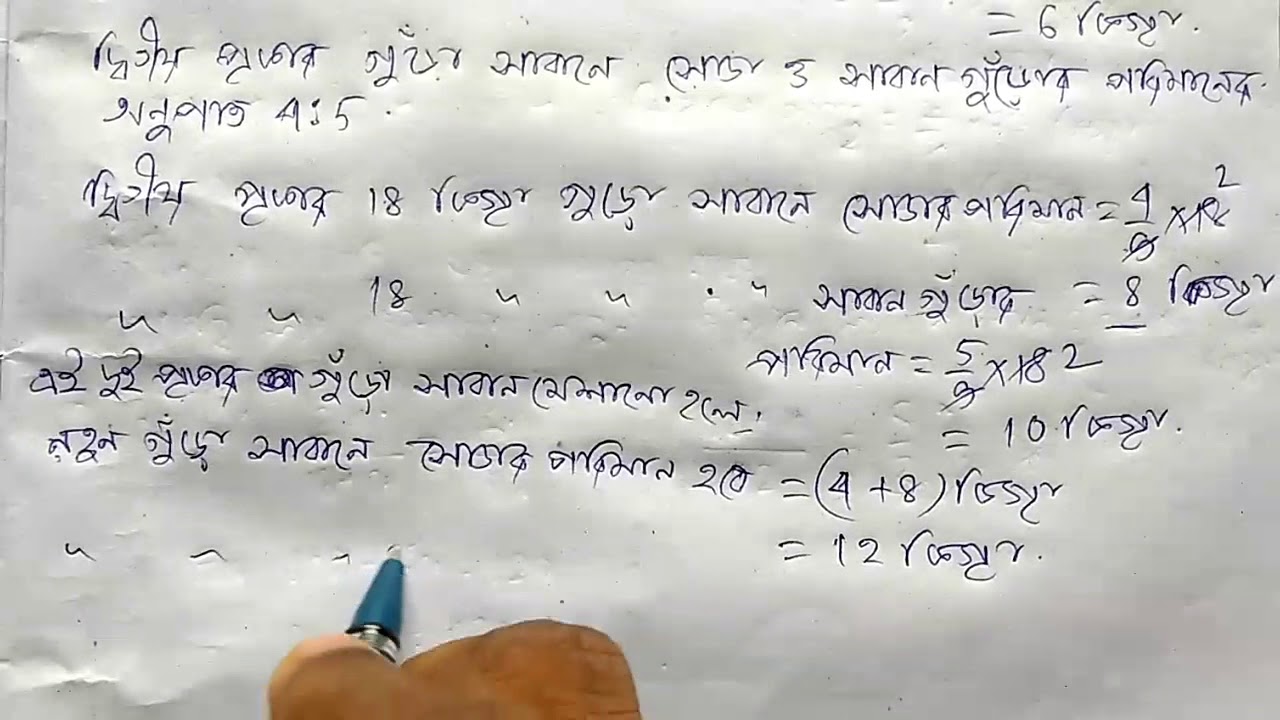 = 6 কিগ্রা.
দ্বিতীয় প্রকার গুঁড়া সাবানে সোডা ও সাবান গুঁড়োর পরিমানের
অনুপাত 4:5.
দ্বিতীয় প্রকার 18 কিগ্রা গুড়ো সাবানে সোডার পরিমান = 4/9 × 18 2
= 8 কিগ্রা
" " 18 " " " সাবান গুঁড়ার
পরিমান = 5/9 × 18 2
= 10 কিগ্রা.
এই দুই প্রকার গুঁড়া সাবান মেশানো হলে,
নতুন গুঁড়া সাবানে সোডার পরিমান হবে = (4 + 8) কিগ্রা
" " " = 12 কিগ্রা.